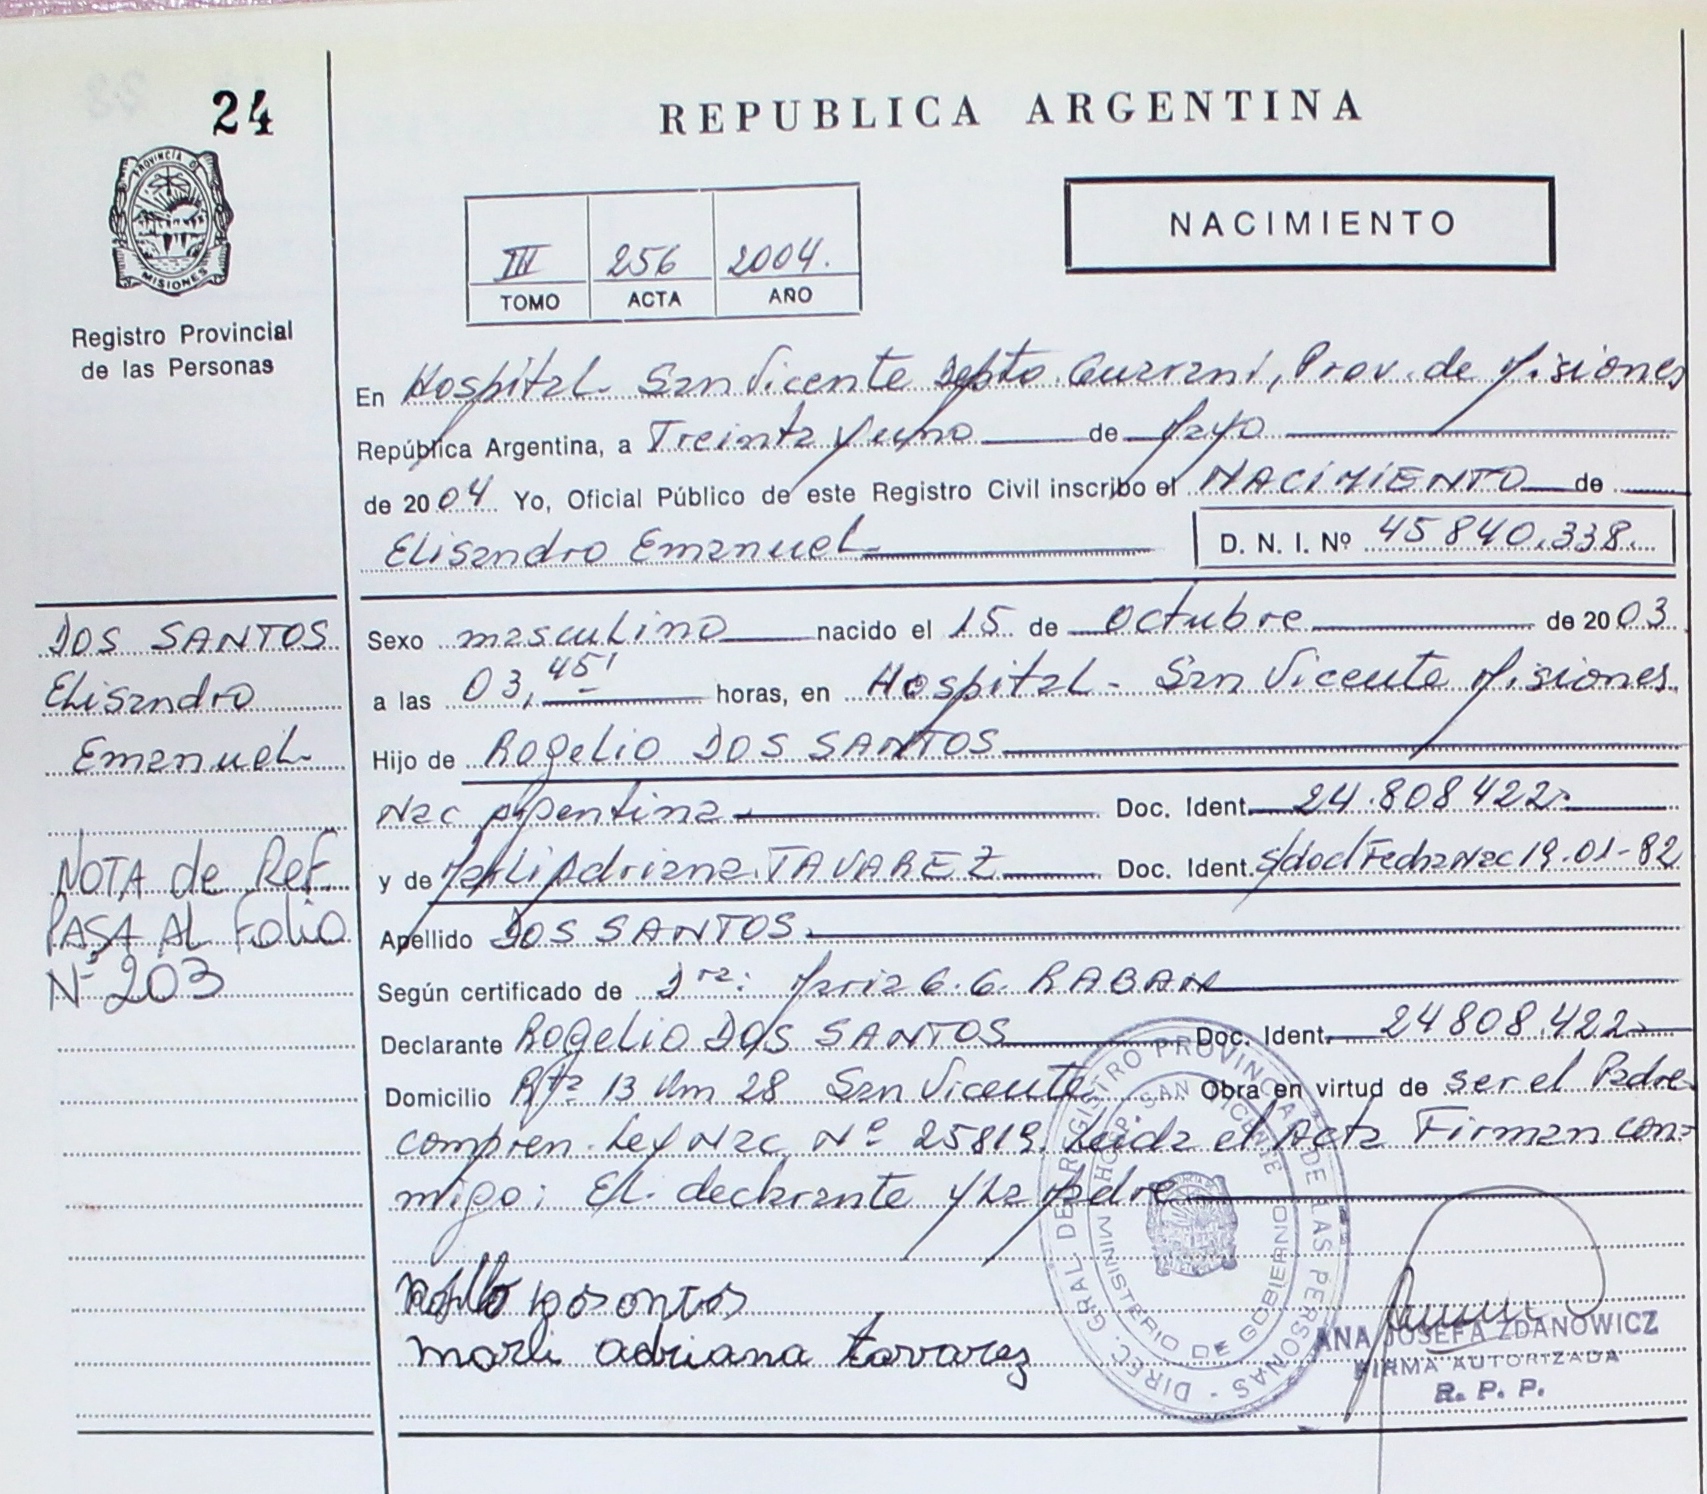 24
PROVINCIA DE
MISIONES
Registro Provincial
de las Personas
REPUBLICA ARGENTINA
NACIMIENTO
III 256 2004.
TOMO ACTA AÑO
En Hospital San Vicente Depto. Guarani, Prov. de Misiones
República Argentina, a Treinta y uno de Mayo
de 2004 Yo, Oficial Público de este Registro Civil inscribo el NACIMIENTO de
Elisandro Emanuel D. N. I. Nº 45840.338.
DOS SANTOS
Elisandro
Emanuel
NOTA de Ref.
PASA AL Folio
Nº 203
Sexo masculino nacido el 15 de Octubre de 2003
a las 03,45' horas, en Hospital - San Vicente Misiones.
Hijo de Rogelio DOS SANTOS
Nac Argentina Doc. Ident. 24.808422
y de Marli Adriana TAVAREZ Doc. Ident. s/doc Fecha Nac 19-01-82
Apellido DOS SANTOS.
Según certificado de Dra: Maria G. G. RABAN
Declarante Rogelio DOS SANTOS Doc. Ident. 24808.422
Domicilio Rta 13 Km 28 San Vicente Obra en virtud de ser el Padre
compren. Ley Nac. Nº 25819. Leida el Acta Firman con-
migo: El declarante y La Madre
marli adriana tavarez
DIREC. GRAL DEL REGISTRO PROVINCIAL DE LAS PERSONAS -
HOSP. SAN VICENTE
MINISTERIO DE GOBIERNO
ANA JOSEFA ZDANOWICZ
FIRMA AUTORIZADA
R. P. P.